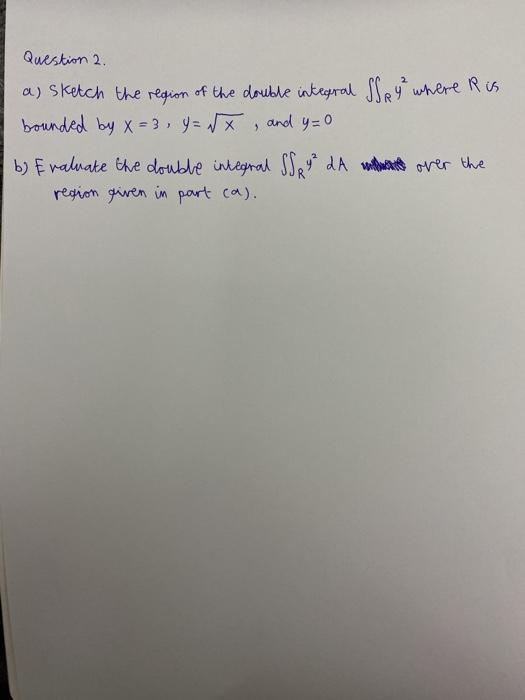 Question 2.
a) Sketch the region of the double integral ∬_R y² where R is
bounded by x = 3, y = √x, and y = 0
b) Evaluate the double integral ∬_R y² dA over the
region given in part (a).